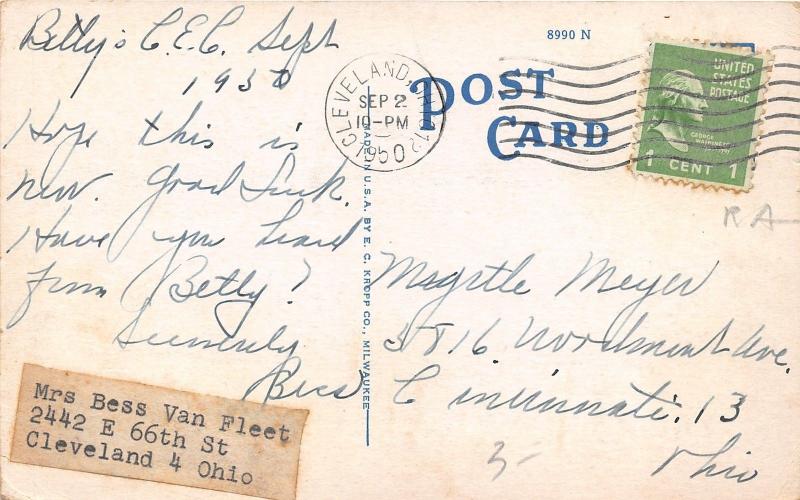 Betty's C.E.C. Sept
1950
Hope this is
new. Good Luck.
Have you heard
from Betty?
Sincerely
Bess
Mrs Bess Van Fleet
2442 E 66th St
Cleveland 4 Ohio
8990 N
POST
CARD
CLEVELAND, OHIO
SEP 2
10-PM
1950
MADE IN U.S.A. BY E. C. KROPP CO., MILWAUKEE
UNITED
STATES
POSTAGE
GEORGE
WASHINGTON
1 CENT 1
RA
Myrtle Meyer
5816 Woodmont Ave.
Cincinnati. 13
Ohio